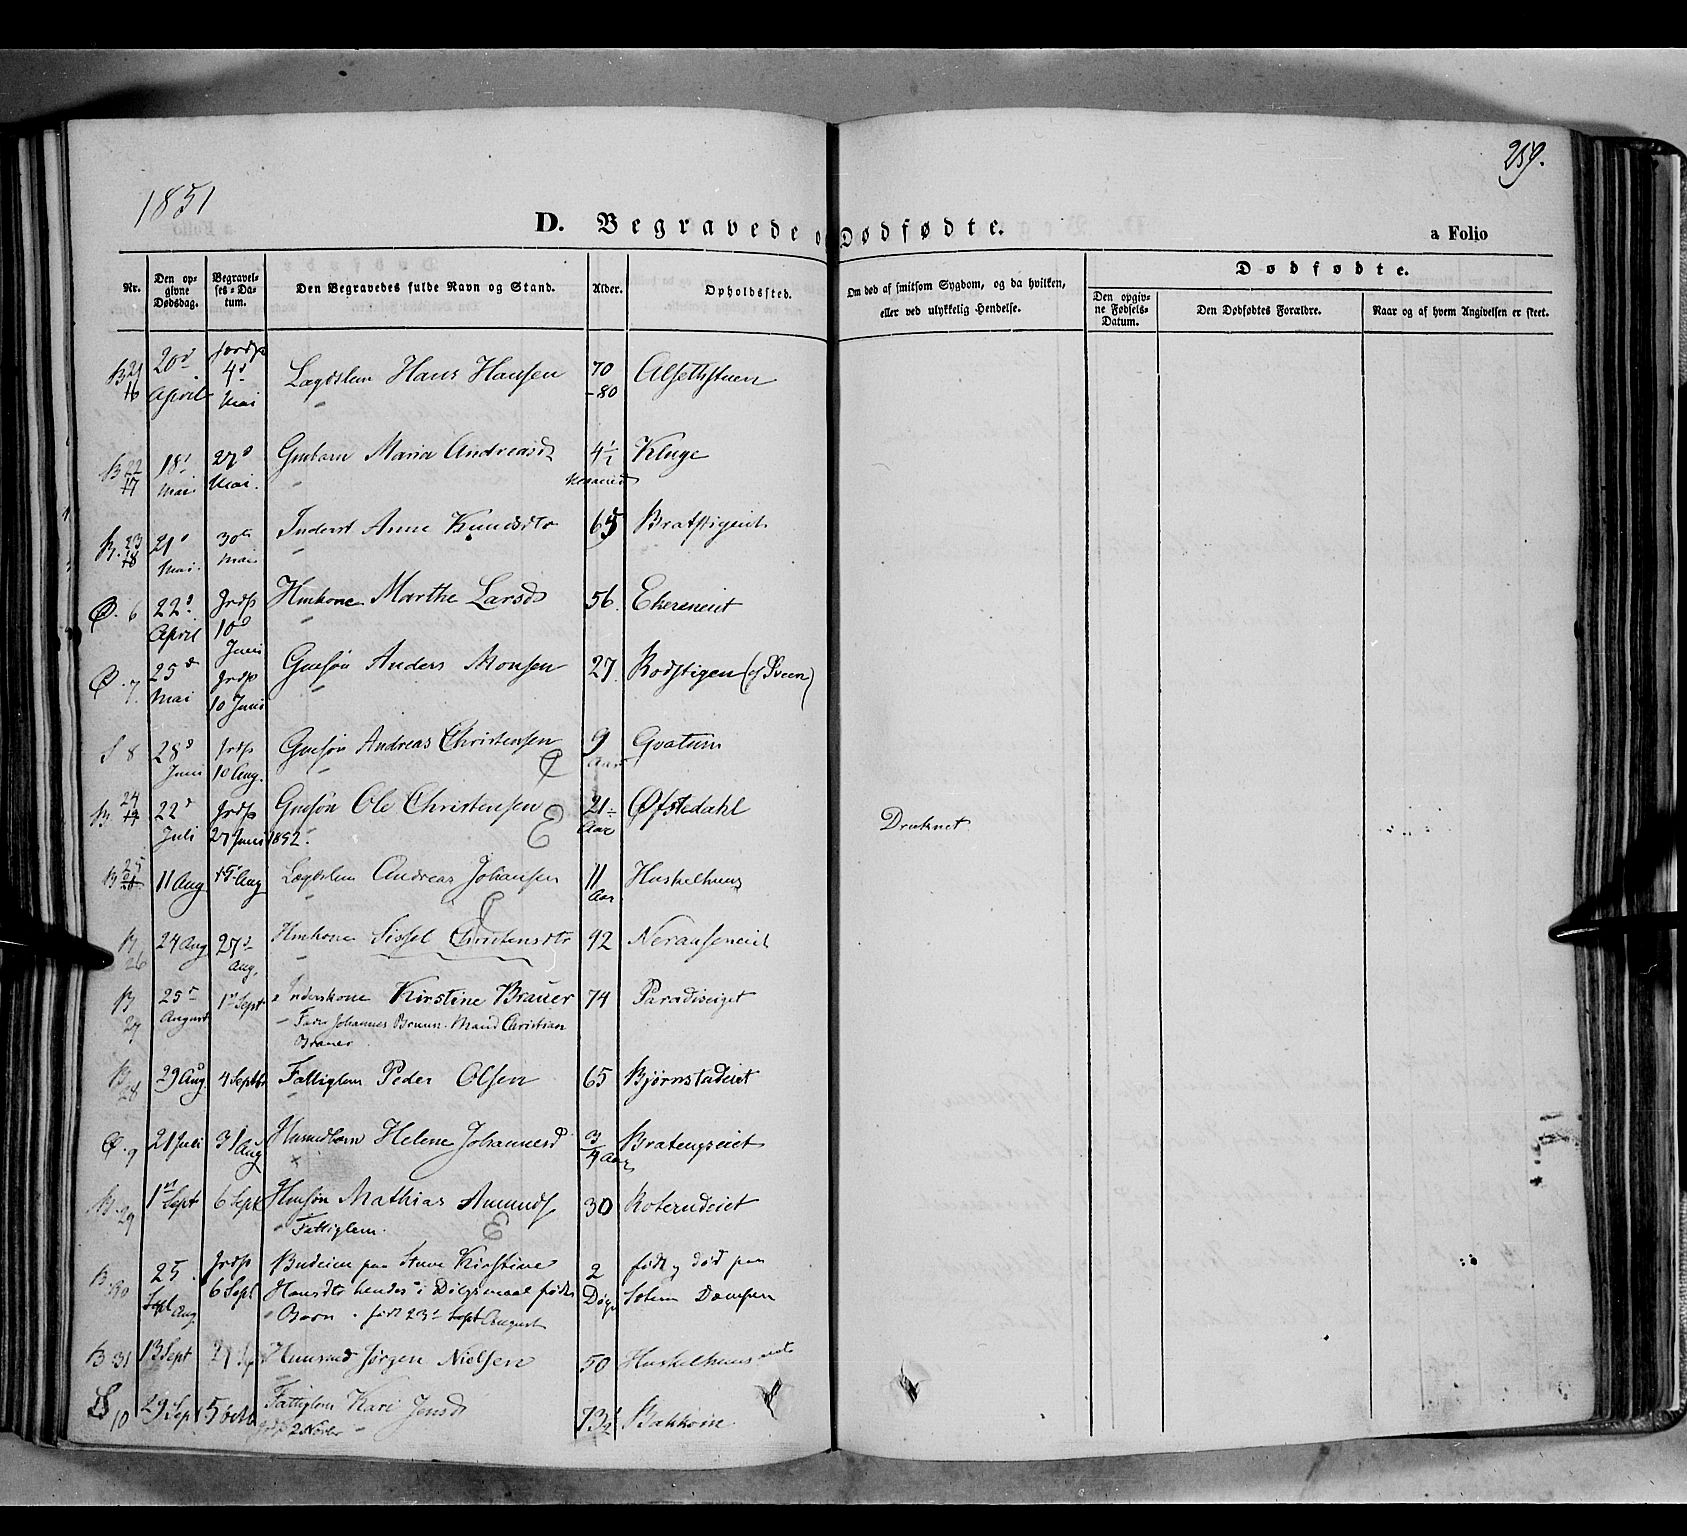 259.
1851
D. Begravede o Dødfødte.
a Folio
Nr.
Den op-
givne
Dødsdag.
Begravel-
ses-Da-
tum.
Den Begravedes fulde Navn og Stand.
Alder.
Opholdssted.
Om død af smitsom Sygdom, og da hvilken,
eller ved ulykkelig Hendelse.
Dødfødte.
Den opgiv-
ne Fødsels-
Datum.
Den Dødfødtes Forældre.
Naar og af hvem Angivelsen er skeet.
B 21 16 20d April Jordp 4d Mai Lægdslem Hans Hansen 70 - 80 Alsethstuen
B 22 17 18d Mai 27d Mai. Gmbarn Maria Andreasd 4½ Maaned Kluge
B. 23 18 21d Mai. 30te Mai Inderst Anne Knudsdtr 65 Bratstigeiet
Ø. 6 22d April Jrdp 10d Juni Hmkone Marthe Larsd 56. Ekereneiet
Ø. 7. 25d Mai Jrdp 10 Juni Gmsøn Anders Monsen 27. Rodstigen (of Sveen)
S 8 28d Juni Jrdp 10 Aug. Gmsøn Andreas Christensen 9 Aar Gvatum
B. 24 19 22d Juli Jrdp 27 Juni 1852. Gmsøn Ole Christensen 21 Aar Øfstedahl Druknet
B 25 11 Aug 15 Aug Lægdslem Andreas Johansen 11 Aar Huskelhuus
B 26 24 Aug 27d Aug. Hmkone Sissel Christensdtr 42 Neraaseneiet
B 27 25d August 1st Sept Inderskone Kirstine Brauer 74 Paradiseiget
Fader Johannes Mand Christian
Brauer.
B 28 29 Aug 4 Septbr Fattiglem Peder Olsen 65 Bjørnstadeiet
Ø. 9 21 Juli 31 Aug Huusmdbarn Helene Johannesd 3/4 Aar Bratengseiet
B. 29 1st Sept 6 Sept Hmsøn Mathias Amunds 30 Roterudeiet
Fattiglem.
B. 30 25 Sept Aug Jrdp 6 Sept Budeien paa Stuve Kirstine 2 Døgn født og død paa
Hansdtr hendes i Dølgsmaal fødte Solem Dampen
Barn. født 23d Sept August
B 31 13 Sept 21 Huusmd Jørgen Nielsen 50 Huskelhuus eiet
S 10 29 Sept 5 Octb Fattiglem Kari Jensd 73½ Bakkoine
Jrdp 2 Novbr